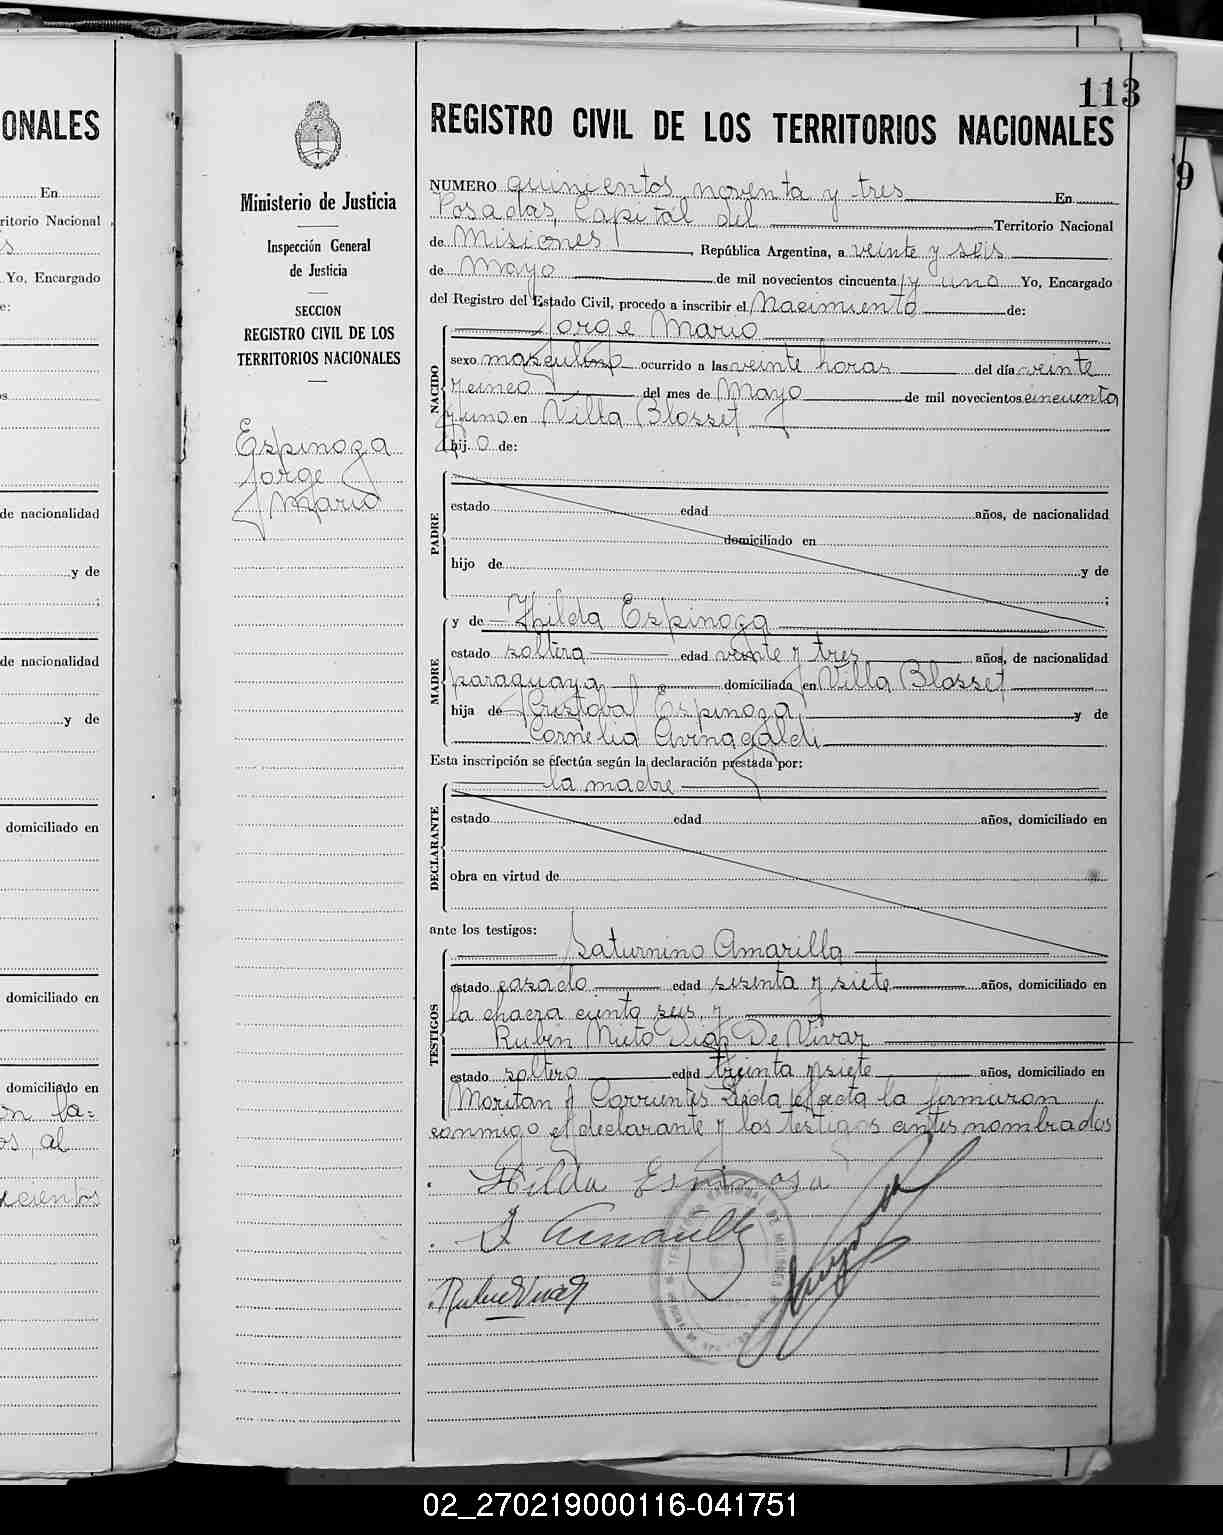 ONALES
En
ritorio Nacional
s
Yo, Encargado
e:
os
de nacionalidad
y de
;
de nacionalidad
y de
domiciliado en
domiciliado en
domiciliado en
en la=
os, al
cientos
Ministerio de Justicia
Inspección General
de Justicia
SECCION
REGISTRO CIVIL DE LOS
TERRITORIOS NACIONALES
Espinoza
Jorge
Mario
113
9
REGISTRO CIVIL DE LOS TERRITORIOS NACIONALES
NUMERO quinientos noventa y tres En
Posadas, Capital del Territorio Nacional
de Misiones, República Argentina, a veinte y seis
de Mayo de mil novecientos cincuenta y uno Yo, Encargado
del Registro del Estado Civil, procedo a inscribir el Nacimiento de:
Jorge Mario
NACIDO
sexo masculino ocurrido a las veinte horas del día veinte
y cinco del mes de Mayo de mil novecientos cincuenta
y uno en Villa Blosset
hijo de:
PADRE
estado edad años, de nacionalidad
domiciliado en
hijo de y de
;
MADRE
y de Hilda Espinoza
estado soltera edad veinte y tres años, de nacionalidad
paraguaya domiciliada en Villa Blosset
hija de Cristobal Espinoza y de
Cornelia Avinagaldi
Esta inscripción se efectúa según la declaración prestada por:
la madre
DECLARANTE
estado edad años, domiciliado en
obra en virtud de
ante los testigos:
TESTIGOS
Saturnino Amarilla
estado casado edad sesenta y siete años, domiciliado en
la chacra ciento seis, y
Rubin Nieto Diaz De Vivar
estado soltero edad treinta y siete años, domiciliado en
Moritan y Corrientes Leida el acta la firmaron
conmigo el declarante y los testigos antes nombrados
Hilda Espinosa
S. Amarilla
02_270219000116-041751